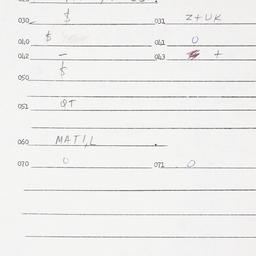 030 $ 031 Z+UK
040 $ 041 0
042 – 043 +
050 $
051 QT
060 MATI,L
070 0 071 0